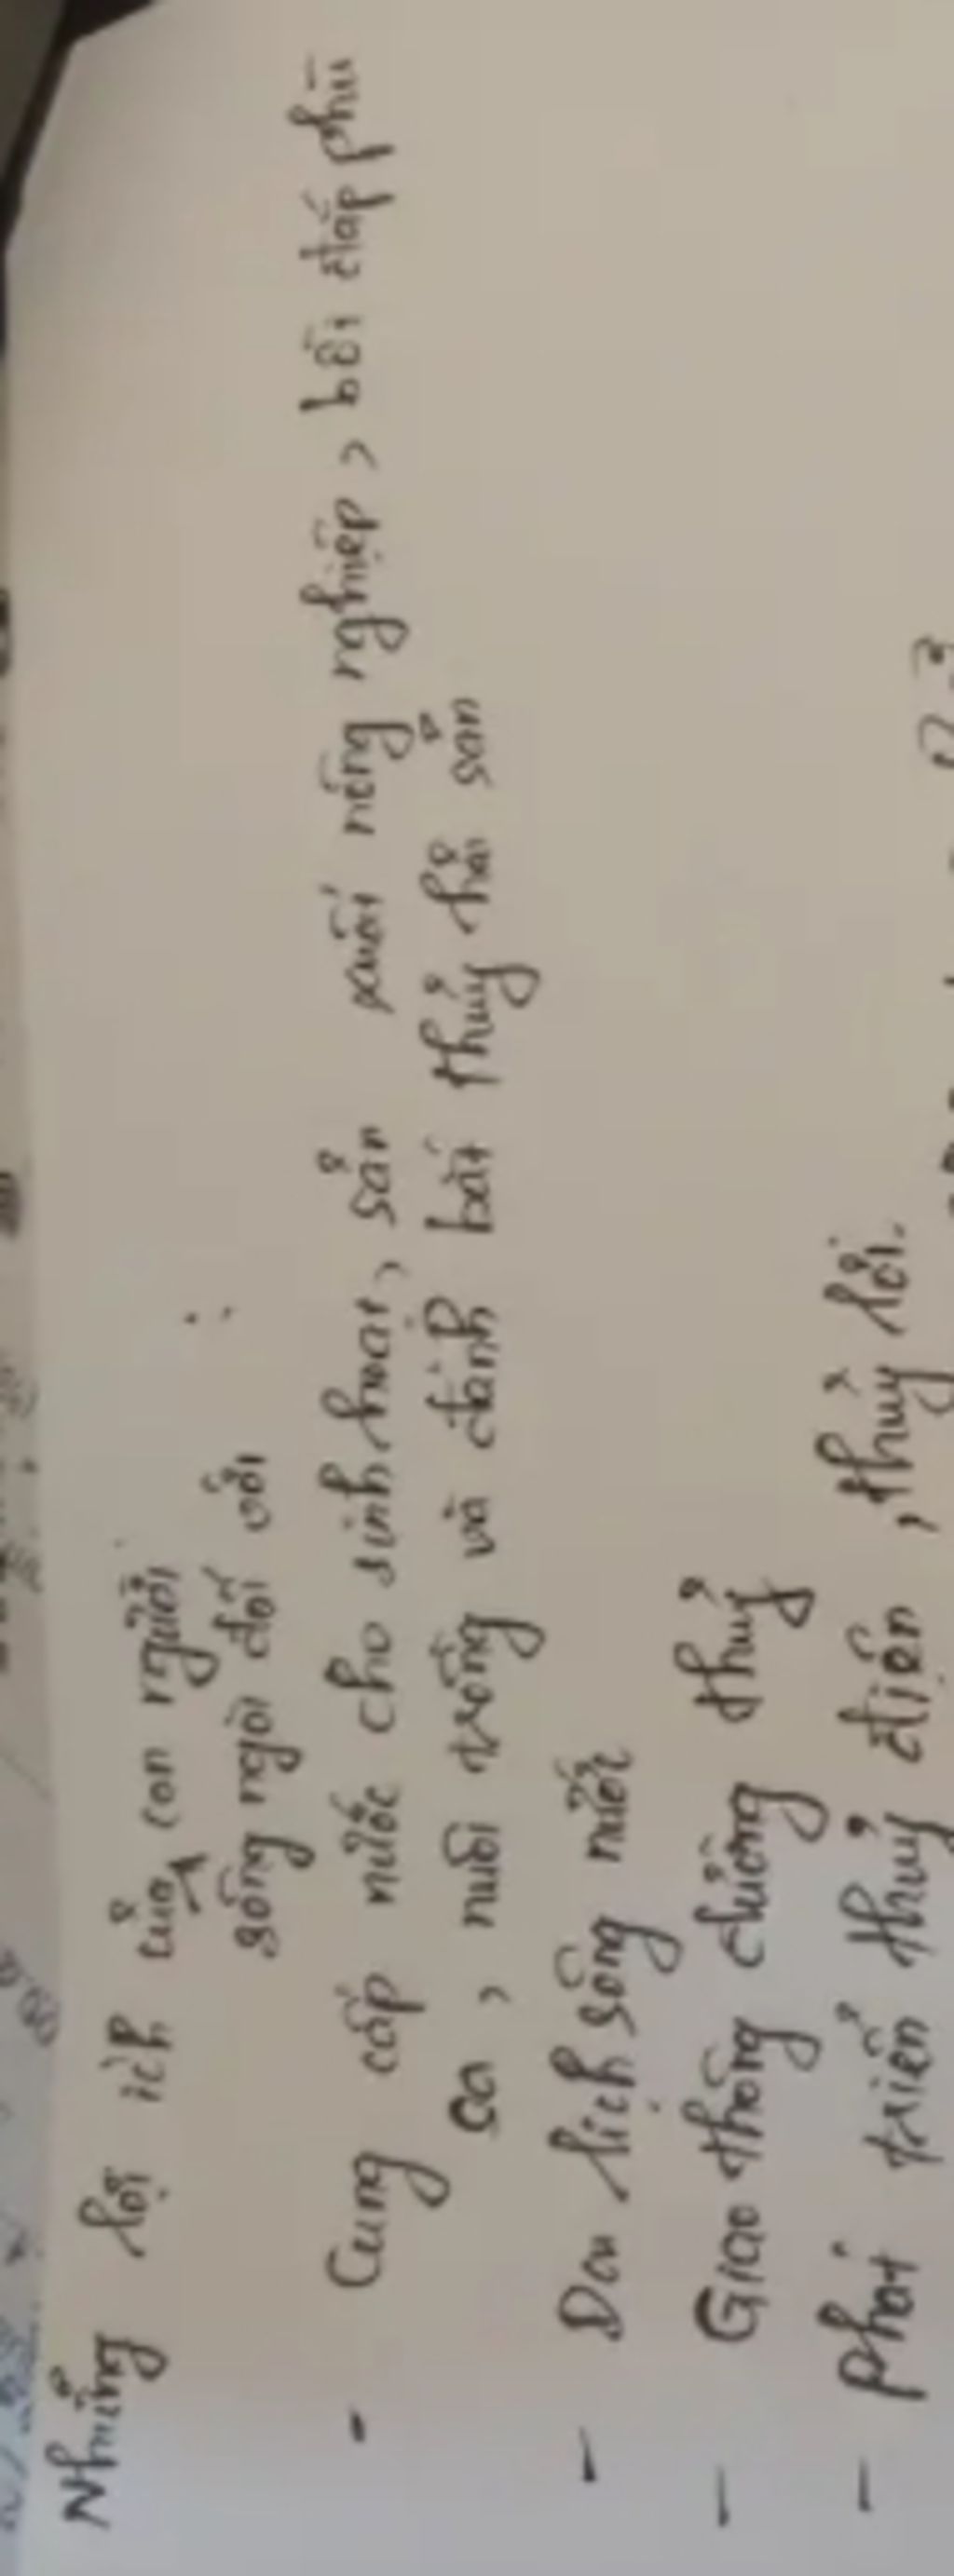 Những lợi ích của con người
sông ngòi đối với :
- Cung cấp nước cho sinh hoạt, sản xuất nông nghiệp, bồi đắp phù
sa, nuôi trồng và đánh bắt thủy hải sản
- Du lịch sông nước
- Giao thông đường thuỷ
- phát triển thuỷ điện, thuỷ lợi.